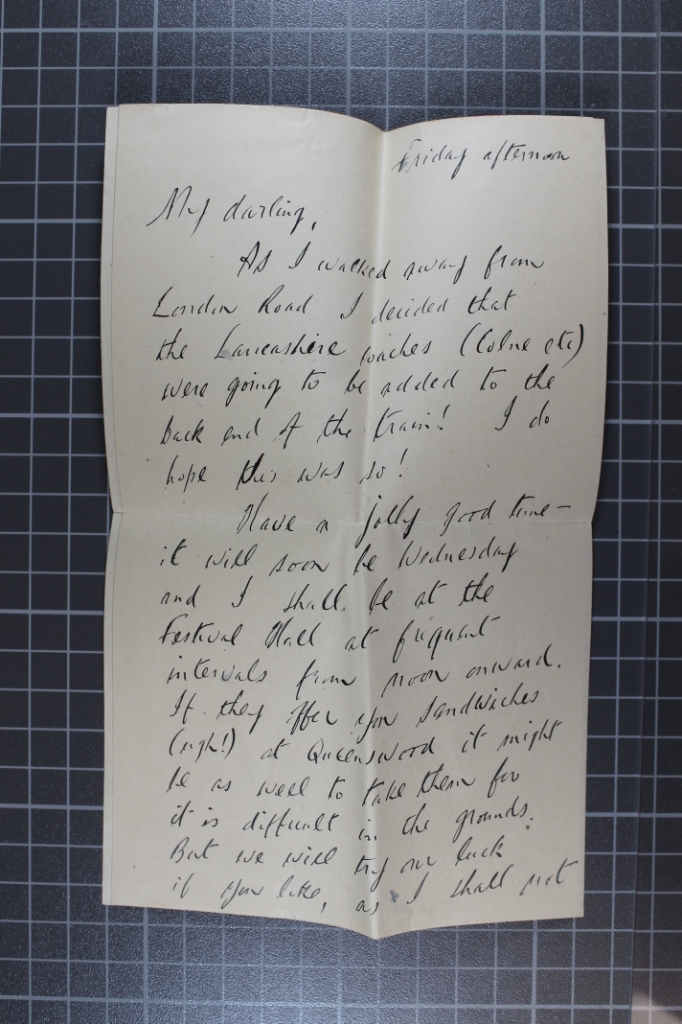 Friday afternoon
My darling,
As I walked away from
London Road I decided that
the Lancashire coaches (Colne etc)
were going to be added to the
back end of the train! I do
hope this was so!
Have a jolly good time –
it will soon be Wednesday
and I shall be at the
Festival Hall at frequent
intervals from noon onward.
If they offer you sandwiches
(ugh!) at Queenswood it might
be as well to take them for
it is difficult in the grounds.
But we will try our luck
if you like, as I shall not